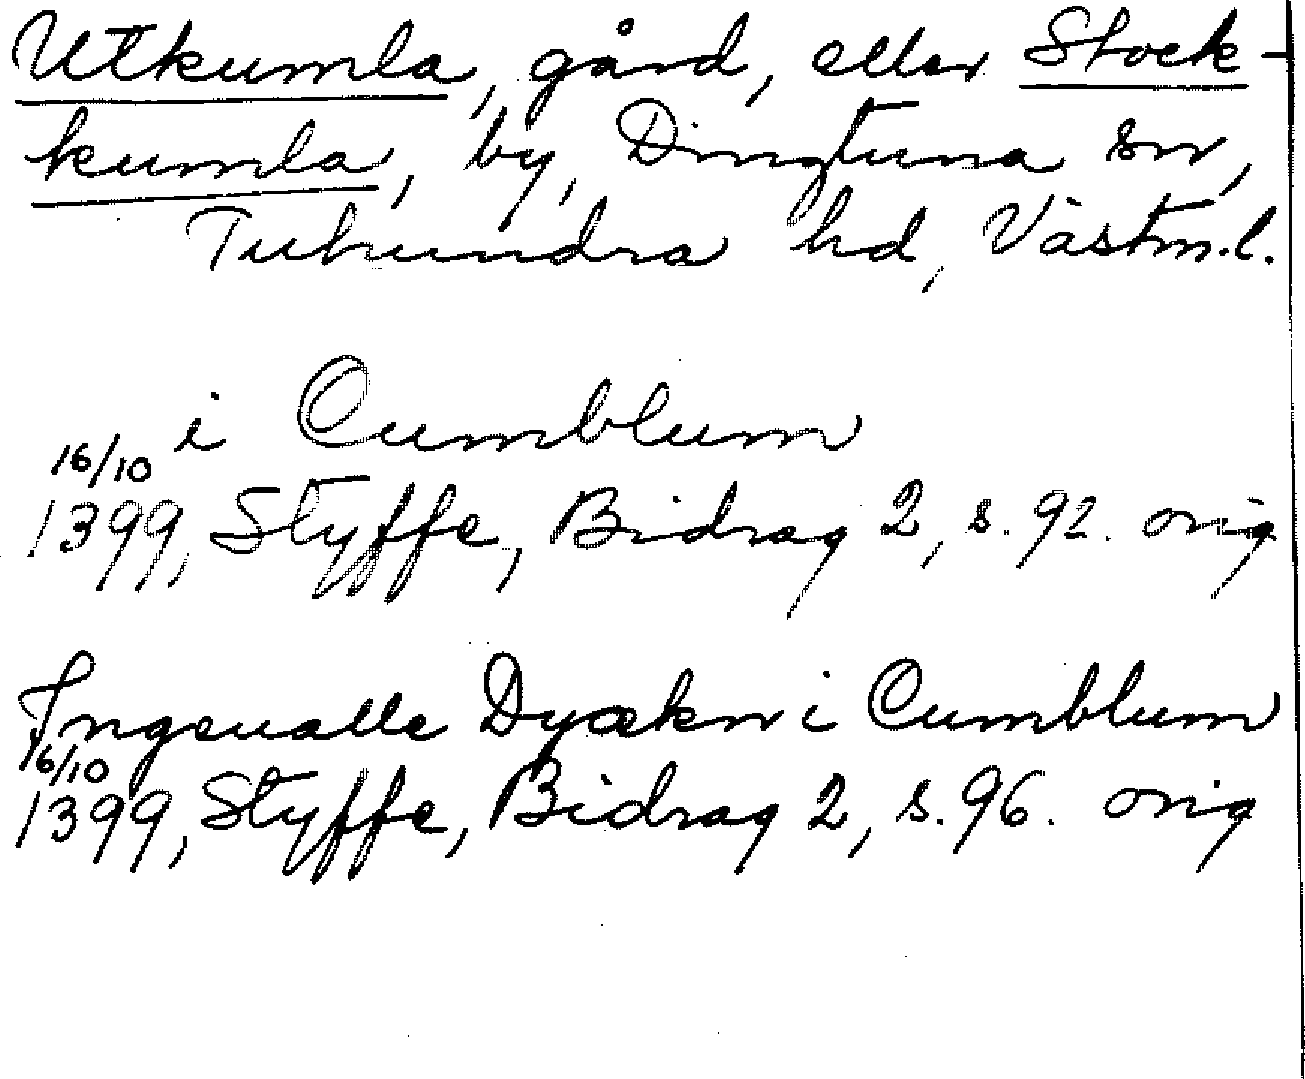 Utkumla, gård, eller Stock-
kumla, by, Dingtuna sn,
Tuhundra hd, Västm.l.
i Cumblum
16/10
1399, Styffe, Bidrag 2, s. 92. orig
Ingeualle Dyækn i Cumblum
16/10
1399, Styffe, Bidrag 2, s. 96. orig